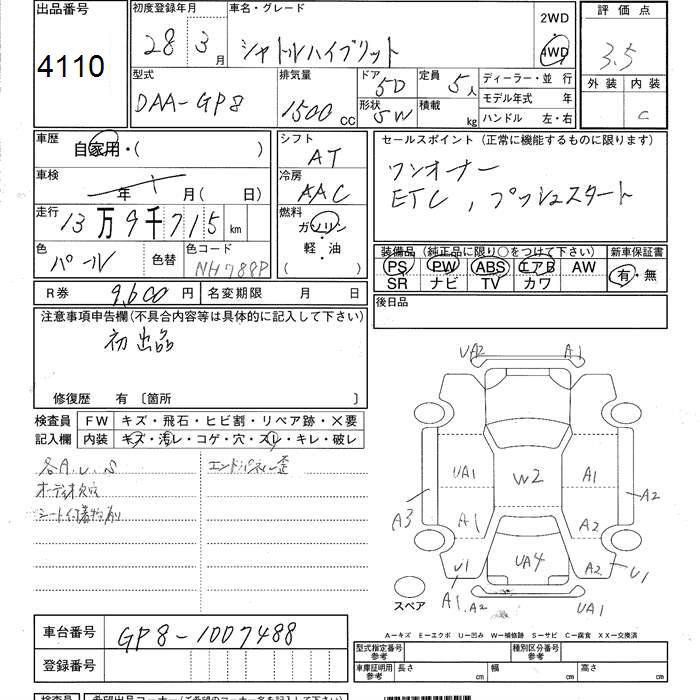 出品番号
4110
初度登録年月
28 3月
車名・グレード
シャトルハイブリット
2WD
4WD
評価点
3.5
外装 内装
C
型式
DAA-GP8
排気量
1500 cc
ドア
5D
形状
SW
定員
5人
積載 kg
ディーラー・並行
モデル年式 年
ハンドル 左・右
車歴
自家用・( )
車検
年 月( 日)
走行
13万9千715 km
色
パール
色替
色コード
NH788P
シフト
AT
冷房
AAC
燃料
ガソリン
軽・油
( )
セールスポイント(正常に機能するものに限ります)
ワンオーナー
ETC、プッシュスタート
装備品(純正品に限り○をつけて下さい)
PS PW ABS エアB AW
SR ナビ TV カワ
新車保証書
有・無
R券 9,600円 名変期限 月 日
後日品
注意事項申告欄(不具合内容等は具体的に記入して下さい)
初出品
修復歴 有〔箇所 〕
検査員 FW キズ・飛石・ヒビ割・リペア跡・×要
記入欄 内装 キズ・汚レ・コゲ・穴・スレ・キレ・破レ
各A.U.S
エンドパネル歪
オーディオ欠穴
シート付着物有り
UA2 A1
UA1 W2 A1
A3 A1 A2 A2
U1 UA4 A2 U1
A1.A2 UA1
スペア
A−キズ E−エクボ U−凹み W−補修跡 S−サビ C−腐食 XX−交換済
車台番号
GP8-1007488
登録番号
型式指定番号 参考 種別区分番号 参考
車庫証明用 参考 長さ cm 幅 cm 高さ cm
検査員 希望出品コーナー(ご希望のコーナー名を記入下さい)